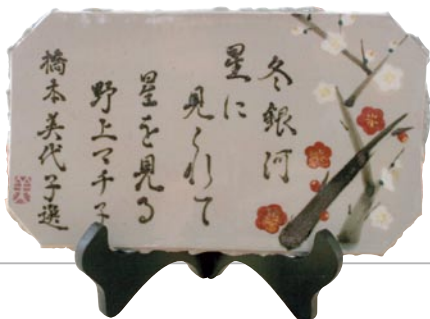 冬銀河
星に
見られて
星を見る
野上マチ子
橋本美代子選